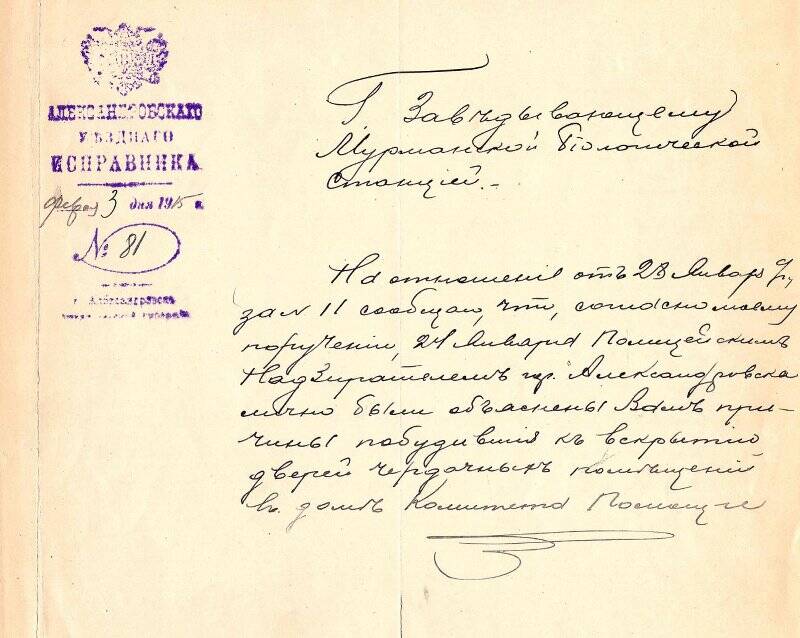 АЛЕКСАНДРОВСКАГО
УѢЗДНАГО
ИСПРАВНИКА
Феврал 3 дня 1915 г.
№ 81
г. Александровскъ
Архангельской губерніи
Г. Завѣдывающему
Мурманской Біологической
Станціей.-
На отношеніе отъ 28 Января с/г,
за № 11 сообщаю, что, согласно моему
порученію, 24 Января Полицейскимъ
Надзирателемъ гор. Александровска
лично были объяснены Вамъ при-
чины побудившія къ вскрытію
дверей чердачныхъ помѣщеній
въ домѣ Комитета Помощи